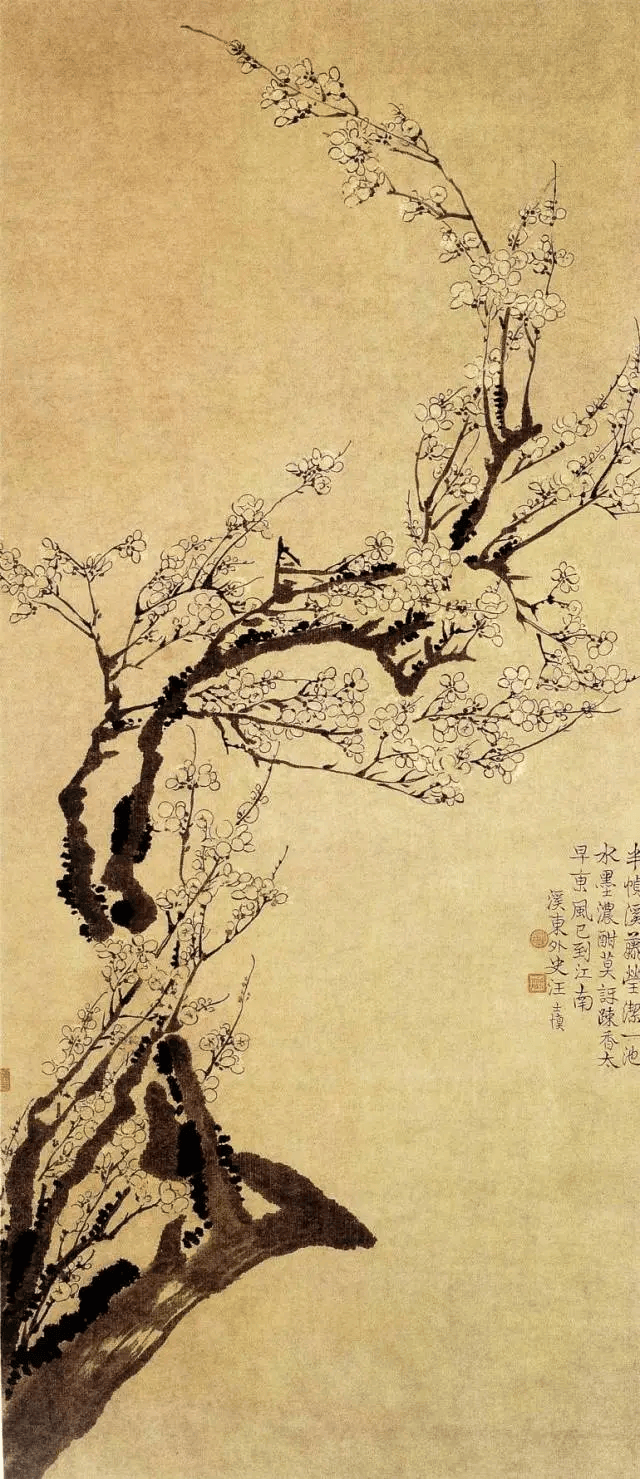 半幀溪藤瑩潔一池
水墨濃酣莫訝疎香太
早東風已到江南
溪東外史汪士慎